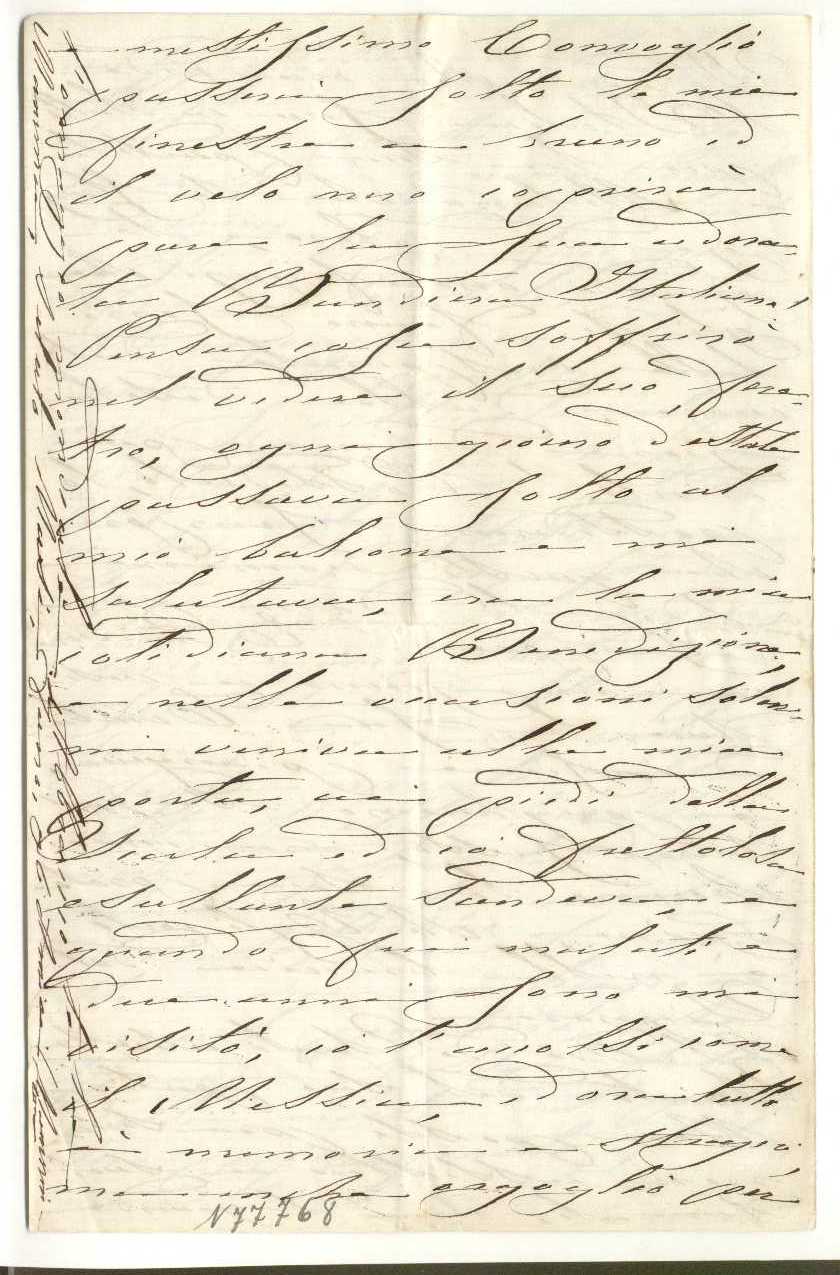 e mestissimo Convoglio
passerà sotto le mie
finestre a bruno ed
il velo nero coprirà
pure la sua adora-
ta Bandiera Italiana!
Pensa cosa soffrirò
nel vedere il suo fere-
tro, ogni giorno d'estate
passava sotto al
mio balcone e mi
salutava, era la mia
cotidiana Benedizione,
e nelle occasioni solen-
ni veniva alla mia
porta, ai piedi della
Scala ed io frettolosa
esultante scendeva, e
quando fui malati e
due anni sono mi
visitò, io l'accolsi come
il Messia, ed ora tutto
è memoria e strazio,
ma anche orgoglio per
N77768